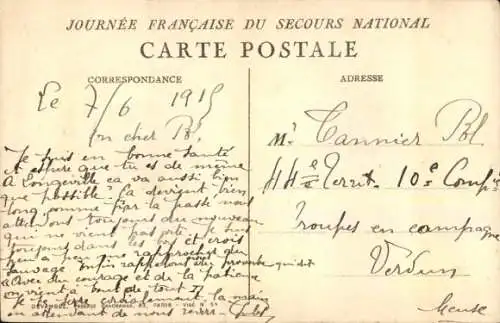 JOURNÉE FRANÇAISE DU SECOURS NATIONAL
CARTE POSTALE
CORRESPONDANCE
ADRESSE
Le 7/6 1915
Mon cher
Je suis en bonne santé
espère que tu es de même
A Longeville ça va aussi bien
que possible. Ça devient bien
long comme par le passé nous
attendons toujours du nouveau
qui ne vient pas vite. Je suis
toujours dans les et crois
peu à peu me rapprocher du
qui dit
Avec du courage et de la patience
on vient à bout de tout
Je te serre cordialement la main
en attendant de nous revoir
Mr Cannier
44e Territ. 10e Comp
Troupes en campagne
Verdun
Meuse